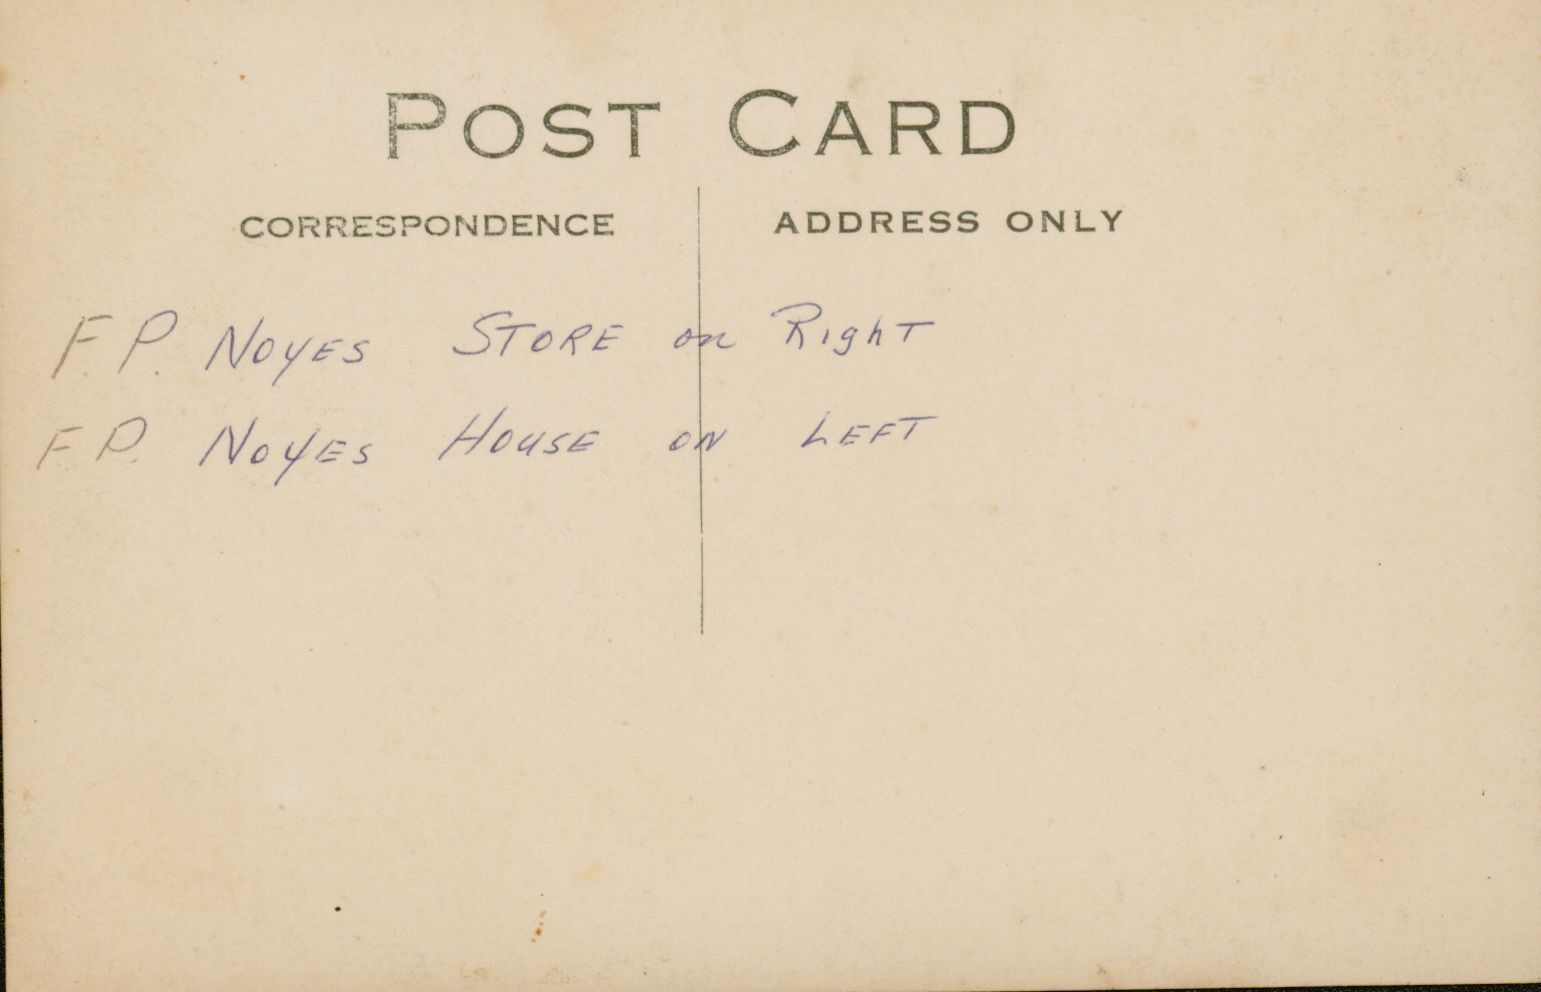 POST CARD
CORRESPONDENCE
ADDRESS ONLY
F. P. NOYES STORE on RighT
F. P. NOYES HOUSE ON LEFT